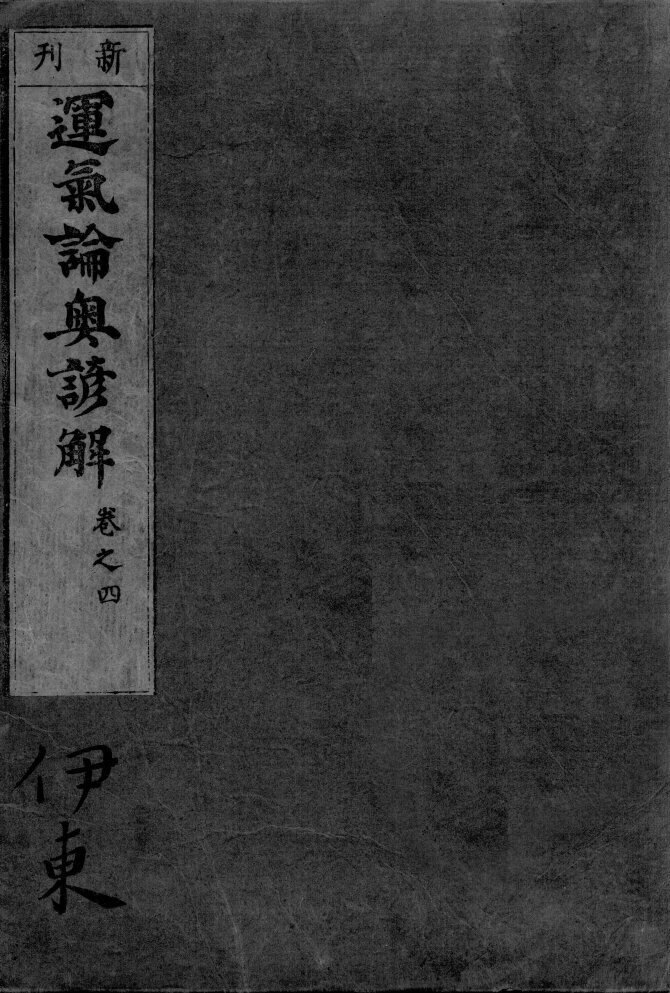 新刊
運氣論奥諺解
卷之四
伊東